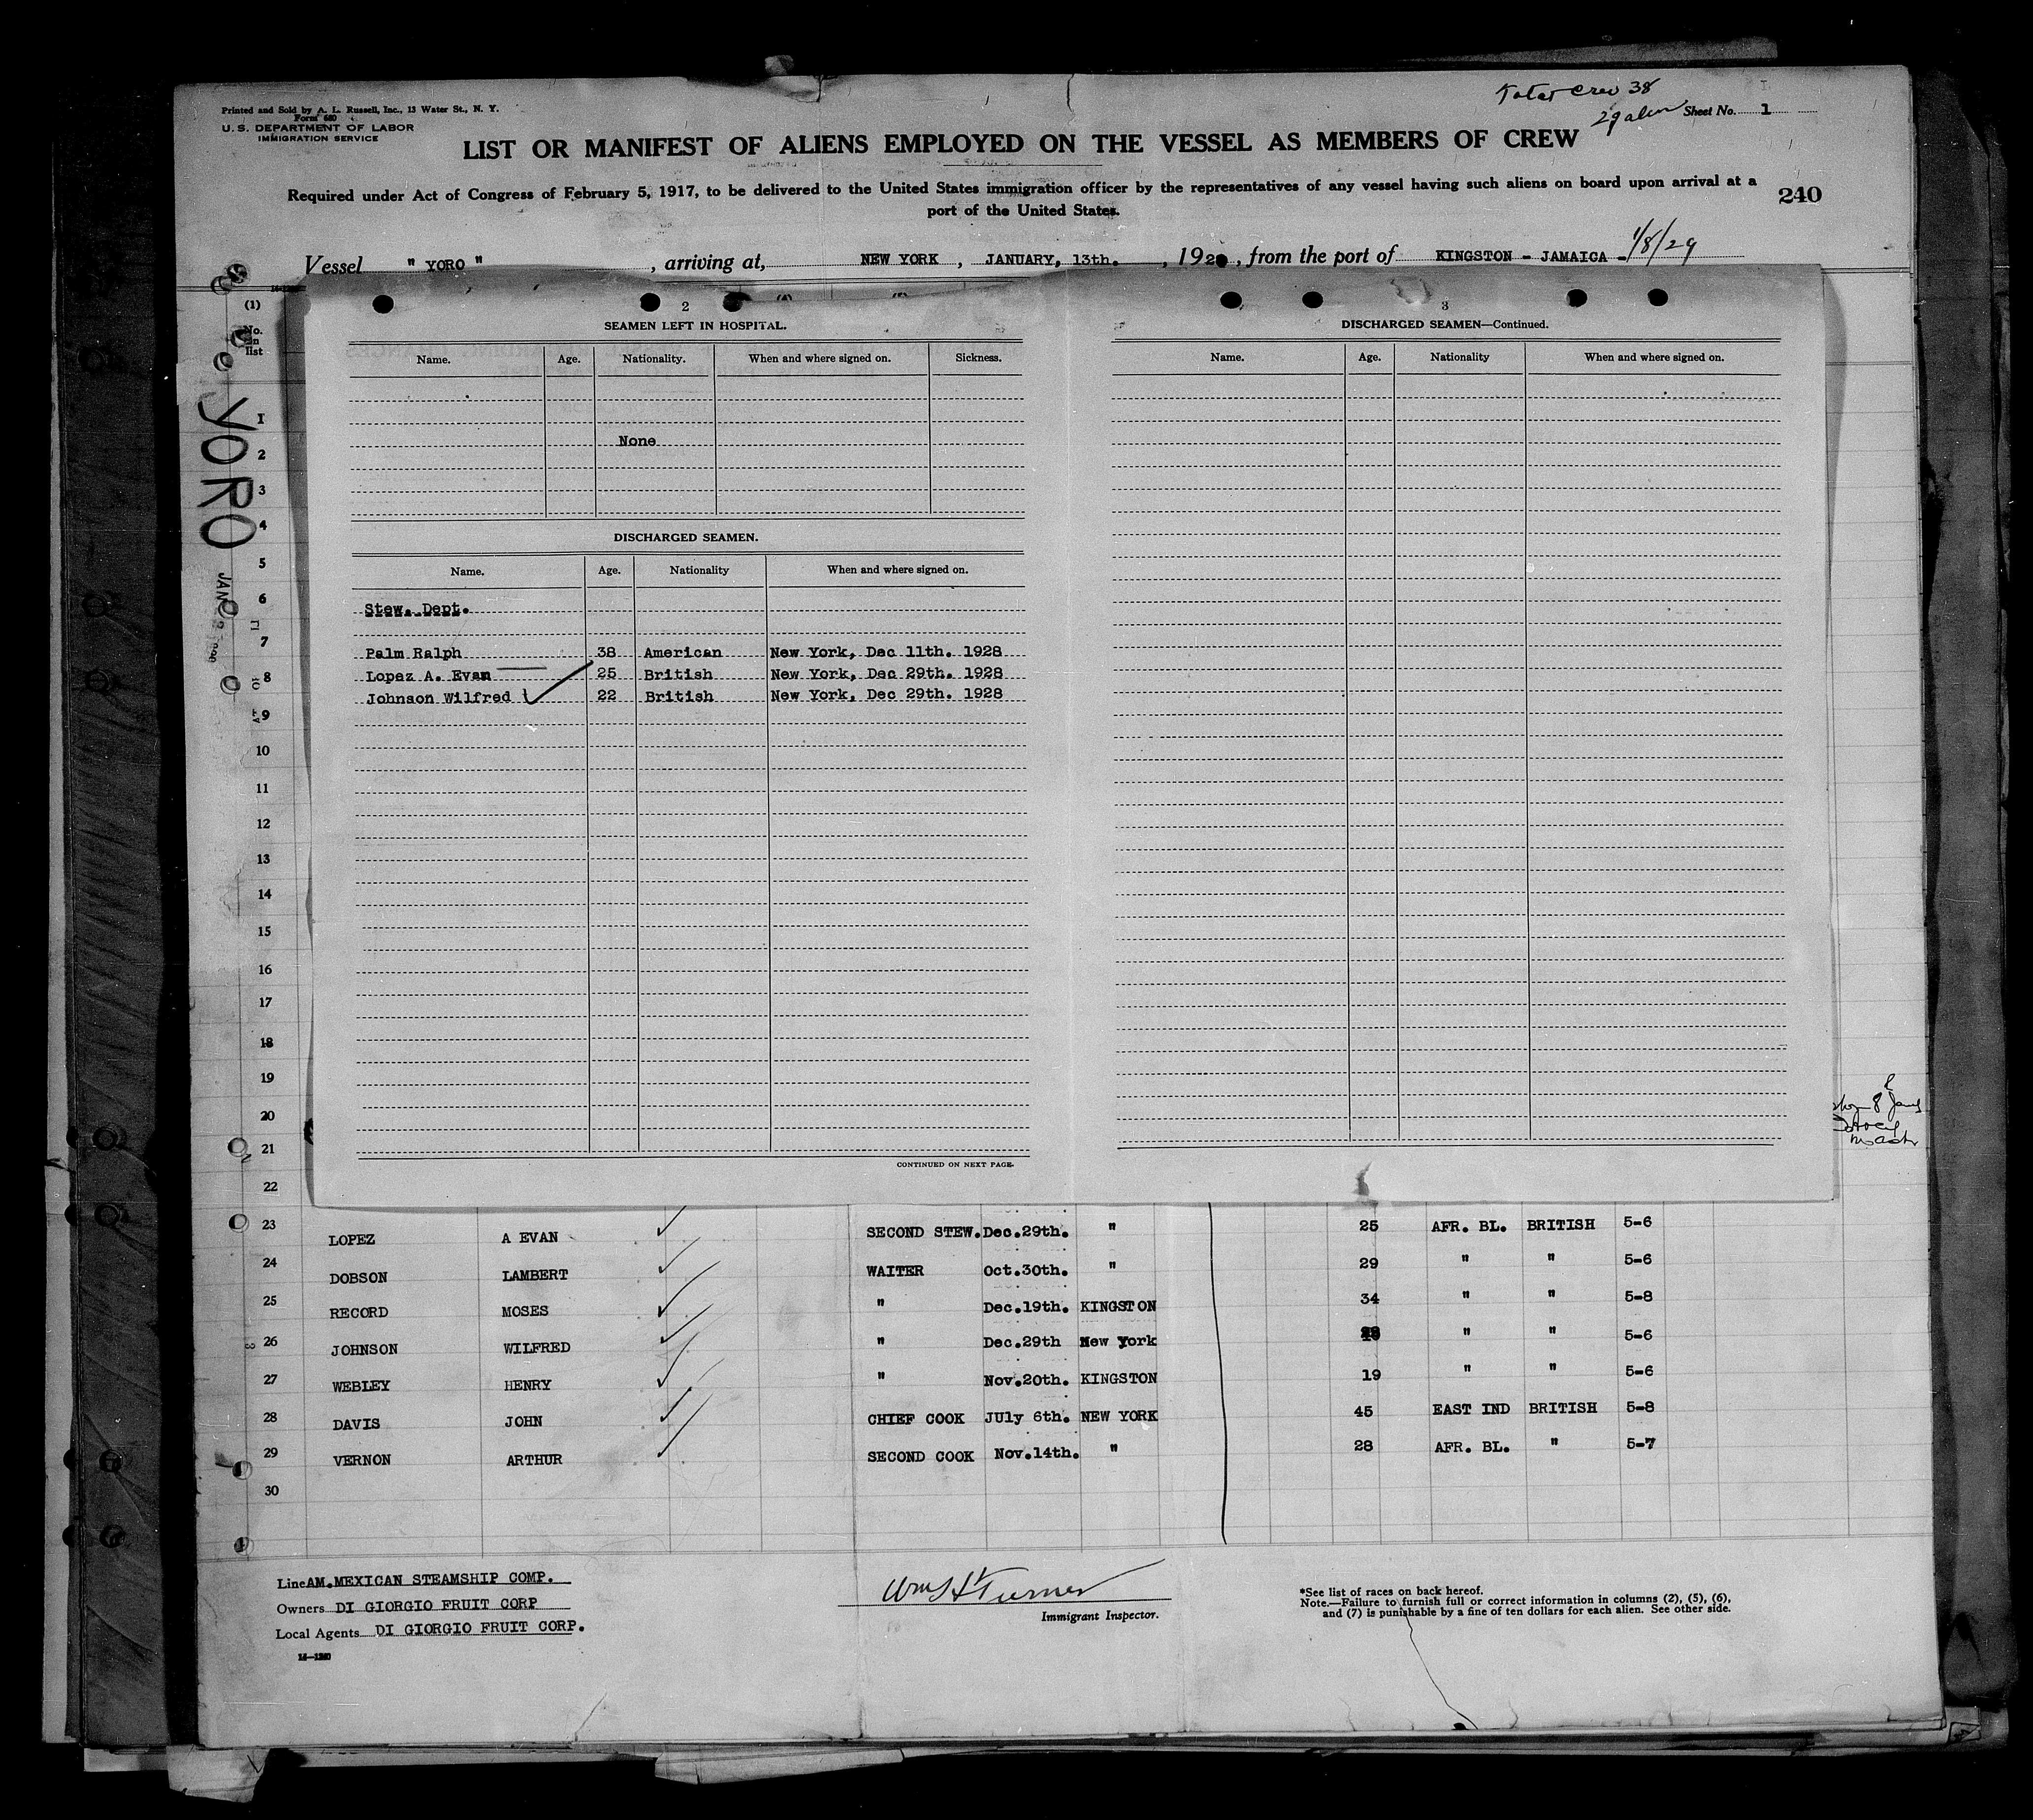 Printed and Sold by A. L. Russell, Inc., 13 Water St., N. Y.
Form 680
U. S. DEPARTMENT OF LABOR
IMMIGRATION SERVICE
Total Crew 38
29 alien
Sheet No. 1
LIST OR MANIFEST OF ALIENS EMPLOYED ON THE VESSEL AS MEMBERS OF CREW
Required under Act of Congress of February 5, 1917, to be delivered to the United States immigration officer by the representatives of any vessel having such aliens on board upon arrival at a
port of the United States.
240
Vessel " YORO " , arriving at, NEW YORK , JANUARY, 13th. , 192 , from the port of KINGSTON - JAMAICA - 1/8/29
(1)
No. in list
YORO
2
SEAMEN LEFT IN HOSPITAL.
Name. Age. Nationality. When and where signed on. Sickness.
None
DISCHARGED SEAMEN.
Name. Age. Nationality When and where signed on.
Stew. Dept.
Palm Ralph 38 American New York, Dec 11th. 1928
Lopez A. Evan 25 British New York, Dec 29th. 1928
Johnson Wilfred 22 British New York, Dec 29th. 1928
CONTINUED ON NEXT PAGE.
3
DISCHARGED SEAMEN—Continued.
Name. Age. Nationality When and where signed on.
1
2
3
4
5
6
7
8
9
10
11
12
13
14
15
16
17
18
19
20
21
22
23 LOPEZ A EVAN SECOND STEW. Dec.29th. " 25 AFR. BL. BRITISH 5-6
24 DOBSON LAMBERT WAITER Oct.30th. " 29 " " 5-6
25 RECORD MOSES " Dec.19th. KINGSTON 34 " " 5-8
26 JOHNSON WILFRED " Dec.29th New York " " 5-6
27 WEBLEY HENRY " Nov.20th. KINGSTON 19 " " 5-6
28 DAVIS JOHN CHIEF COOK July 6th. NEW YORK 45 EAST IND BRITISH 5-8
29 VERNON ARTHUR SECOND COOK Nov.14th. " 28 AFR. BL. " 5-7
30
Line AM.MEXICAN STEAMSHIP COMP.
Owners DI GIORGIO FRUIT CORP
Local Agents DI GIORGIO FRUIT CORP.
14—1240
Wm H Turner
Immigrant Inspector.
*See list of races on back hereof.
Note.—Failure to furnish full or correct information in columns (2), (5), (6),
and (7) is punishable by a fine of ten dollars for each alien. See other side.